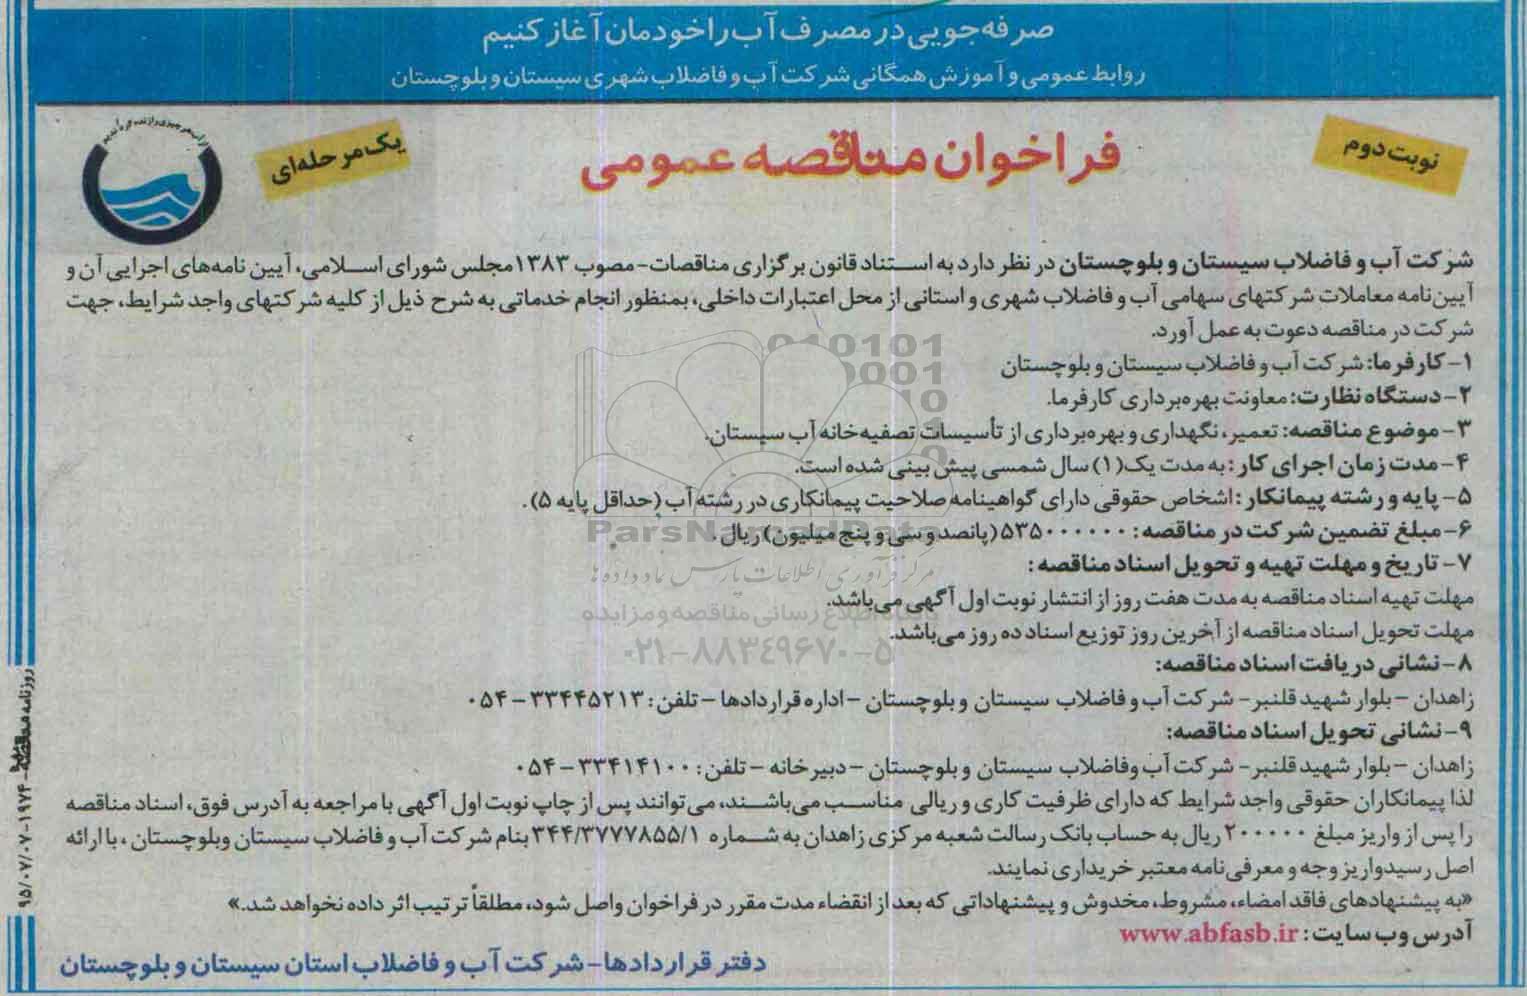 صرفه‌جویی در مصرف آب را خودمان آغاز کنیم
روابط عمومی و آموزش همگانی شرکت آب و فاضلاب شهری سیستان و بلوچستان
نوبت دوم
فراخوان مناقصه عمومی
یک مرحله‌ای
شرکت آب و فاضلاب سیستان و بلوچستان در نظر دارد به استناد قانون برگزاری مناقصات- مصوب ۱۳۸۳ مجلس شورای اسلامی، آیین نامه‌های اجرایی آن و
آیین‌نامه معاملات شرکتهای سهامی آب و فاضلاب شهری و استانی از محل اعتبارات داخلی، بمنظور انجام خدماتی به شرح ذیل از کلیه شرکتهای واجد شرایط، جهت
شرکت در مناقصه دعوت به عمل آورد.
۱- کارفرما: شرکت آب و فاضلاب سیستان و بلوچستان
۲- دستگاه نظارت: معاونت بهره‌برداری کارفرما.
۳- موضوع مناقصه: تعمیر، نگهداری و بهره‌برداری از تأسیسات تصفیه‌خانه آب سیستان.
۴- مدت زمان اجرای کار: به مدت یک (۱) سال شمسی پیش بینی شده است.
۵- پایه و رشته پیمانکار: اشخاص حقوقی دارای گواهینامه صلاحیت پیمانکاری در رشته آب (حداقل پایه ۵).
۶- مبلغ تضمین شرکت در مناقصه: ۵۳۵۰۰۰۰۰۰ (پانصد و سی و پنج میلیون) ریال.
۷- تاریخ و مهلت تهیه و تحویل اسناد مناقصه:
مهلت تهیه اسناد مناقصه به مدت هفت روز از انتشار نوبت اول آگهی می‌باشد.
مهلت تحویل اسناد مناقصه از آخرین روز توزیع اسناد ده روز می‌باشد.
۸- نشانی دریافت اسناد مناقصه:
زاهدان – بلوار شهید قلنبر- شرکت آب و فاضلاب سیستان و بلوچستان – اداره قراردادها – تلفن: ۳۳۴۴۵۲۱۳ – ۰۵۴
۹- نشانی تحویل اسناد مناقصه:
زاهدان – بلوار شهید قلنبر- شرکت آب وفاضلاب سیستان و بلوچستان – دبیرخانه – تلفن: ۳۳۴۱۴۱۰۰ – ۰۵۴
لذا پیمانکاران حقوقی واجد شرایط که دارای ظرفیت کاری و ریالی مناسب می‌باشند، می‌توانند پس از چاپ نوبت اول آگهی با مراجعه به آدرس فوق، اسناد مناقصه
را پس از واریز مبلغ ۲۰۰۰۰۰ ریال به حساب بانک رسالت شعبه مرکزی زاهدان به شماره ۳۴۴/۳۷۷۷۸۵۵/۱ بنام شرکت آب و فاضلاب سیستان وبلوچستان، با ارائه
اصل رسیدواریز وجه و معرفی‌نامه معتبر خریداری نمایند.
«به پیشنهادهای فاقد امضاء، مشروط، مخدوش و پیشنهاداتی که بعد از انقضاء مدت مقرر در فراخوان واصل شود، مطلقاً ترتیب اثر داده نخواهد شد.»
آدرس وب سایت: www.abfasb.ir
دفتر قراردادها- شرکت آب و فاضلاب استان سیستان و بلوچستان
روزنامه مناقصه- ۱۹۷۴-۹۵/۰۷/۰۷
ParsNamadData
مرکز فرآوری اطلاعات پارس نماد داده‌ها
پایگاه اطلاع رسانی مناقصه و مزایده
۰۲۱-۸۸۳۴۹۶۷۰-۵